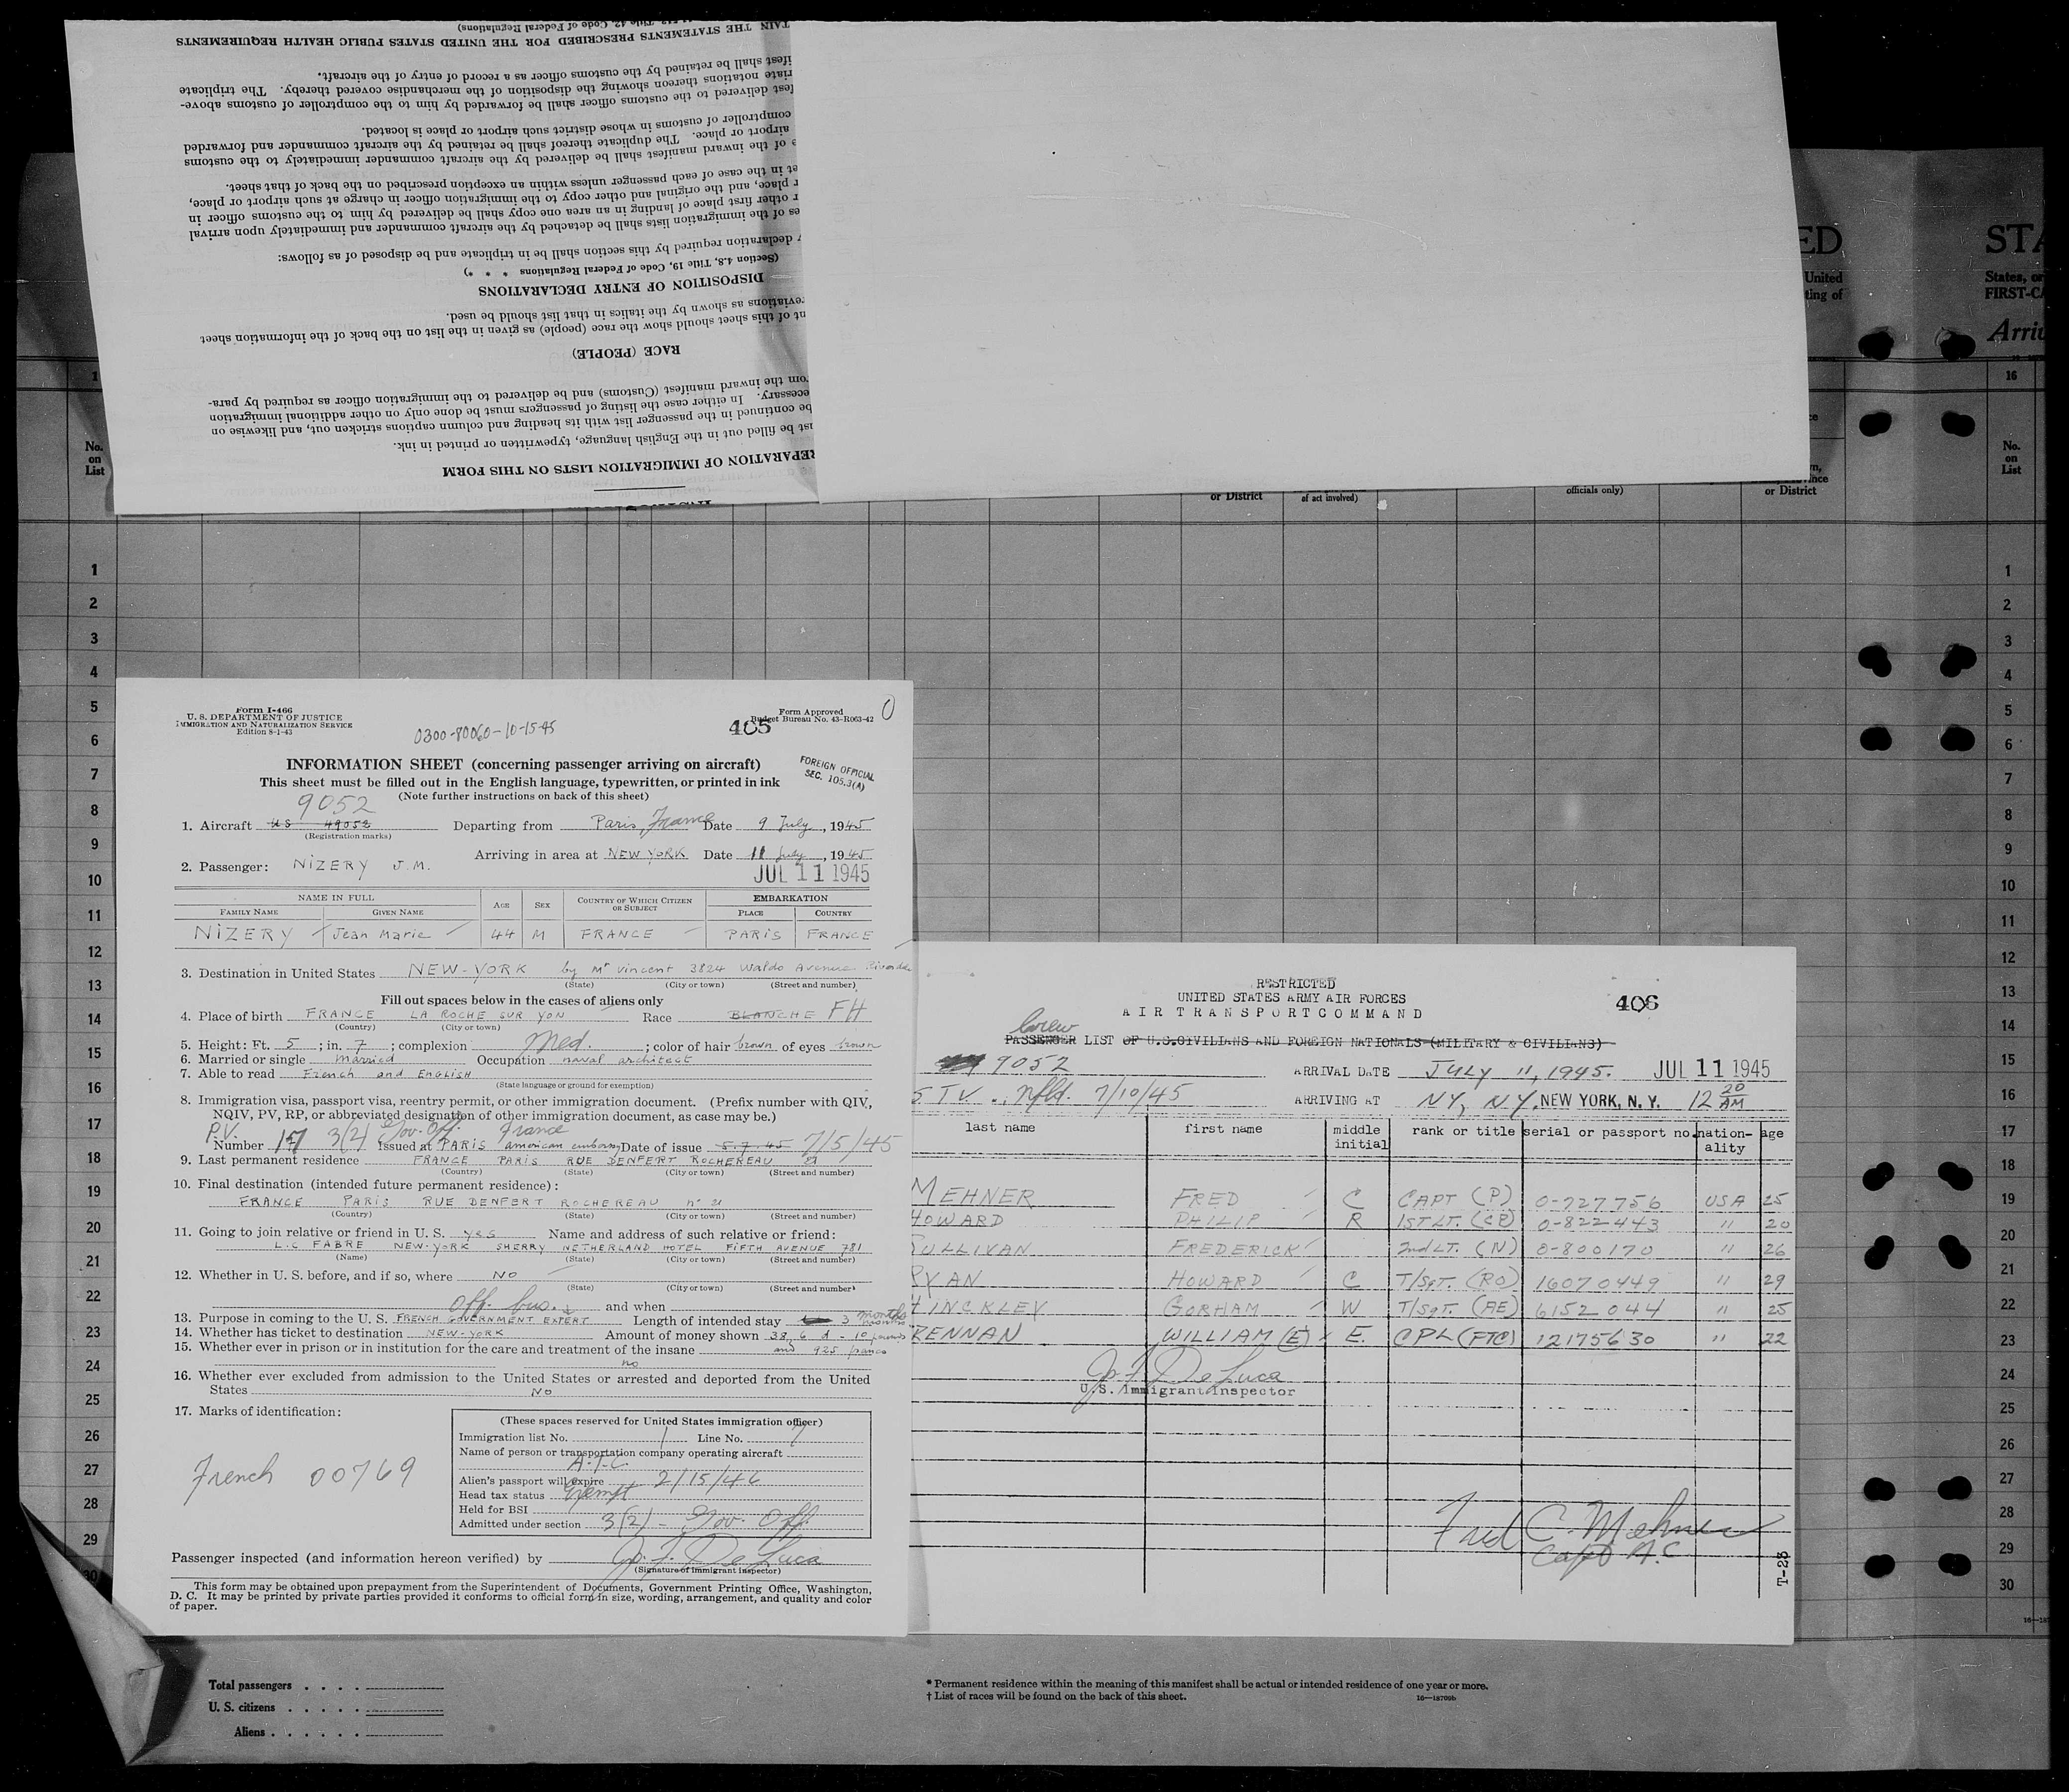 Title 42, Code of Federal Regulations)
TAIN THE STATEMENTS PRESCRIBED FOR THE UNITED STATES PUBLIC HEALTH REQUIREMENTS
ifest shall be retained by the customs officer as a record of entry of the aircraft.
riate notations thereon showing the disposition of the merchandise covered thereby. The triplicate
fest delivered to the customs officer shall be forwarded by him to the comptroller of customs above-
comptroller of customs in whose district such airport or place is located.
airport or place. The duplicate thereof shall be retained by the aircraft commander and forwarded
e of the inward manifest shall be delivered by the aircraft commander immediately to the customs
et in the case of each passenger unless within an exception prescribed on the back of that sheet.
r place, and the original and other copy to the immigration officer in charge at such airport or place,
r other first place of landing in an area one copy shall be delivered by him to the customs officer in
es of the immigration lists shall be detached by the aircraft commander and immediately upon arrival
y declaration required by this section shall be in triplicate and be disposed of as follows:
(Section 4.8, Title 19, Code of Federal Regulations * * *)
DISPOSITION OF ENTRY DECLARATIONS
reviations as shown by the italics in that list should be used.
nt of this sheet should show the race (people) as given in the list on the back of the information sheet
RACE (PEOPLE)
rom the inward manifest (Customs) and be delivered to the immigration officer as required by para-
ecessary. In either case the listing of passengers must be done only on other additional immigration
be continued in the passenger list with its heading and column captions stricken out, and likewise on
ust be filled out in the English language, typewritten or printed in ink.
EPARATION OF IMMIGRATION LISTS ON THIS FORM
ED
United
ting of
STA
States, or
FIRST-CA
Arriv
1
16
No.
on
List
or District
of act involved)
officials only)
or District
No.
on
List
1
2
3
4
5
6
7
8
9
10
11
12
13
14
15
16
17
18
19
20
21
22
23
24
25
26
27
28
29
30
Form I-466
U. S. DEPARTMENT OF JUSTICE
IMMIGRATION AND NATURALIZATION SERVICE
Edition 8-1-43
0300-80060-10-15-45
405
Form Approved
Budget Bureau No. 43-R063-42
0
INFORMATION SHEET (concerning passenger arriving on aircraft)
This sheet must be filled out in the English language, typewritten, or printed in ink
(Note further instructions on back of this sheet)
FOREIGN OFFICIAL
SEC. 105.3(A)
9052
1. Aircraft US 49052 Departing from Paris, France Date 9 July, 1945
(Registration marks)
Arriving in area at NEW YORK Date 11 July, 1945
2. Passenger: NIZERY J.M.
JUL 11 1945
NAME IN FULL
FAMILY NAME GIVEN NAME AGE SEX COUNTRY OF WHICH CITIZEN OR SUBJECT EMBARKATION PLACE COUNTRY
NIZERY Jean Marie 44 M FRANCE PARIS FRANCE
3. Destination in United States NEW-YORK by Mr Vincent 3824 Waldo Avenue Riverdale
(State) (City or town) (Street and number)
Fill out spaces below in the cases of aliens only
4. Place of birth FRANCE LA ROCHE SUR YON Race BLANCHE FH
(Country) (City or town)
5. Height: Ft. 5; in. 7; complexion Med.; color of hair brown of eyes brown
6. Married or single married Occupation naval architect
7. Able to read French and ENGLISH
(State language or ground for exemption)
8. Immigration visa, passport visa, reentry permit, or other immigration document. (Prefix number with QIV,
NQIV, PV, RP, or abbreviated designation of other immigration document, as case may be.)
P.V. 3(2) Gov. Off. France
Number 17 Issued at PARIS american embassy Date of issue 5.7.45 7/5/45
9. Last permanent residence FRANCE PARIS RUE DENFERT ROCHEREAU 21
(Country) (State) (City or town) (Street and number)
10. Final destination (intended future permanent residence):
FRANCE PARIS RUE DENFERT ROCHEREAU n° 21
(Country) (State) (City or town) (Street and number)
11. Going to join relative or friend in U. S. yes Name and address of such relative or friend:
L.C FABRE NEW-YORK SHERRY NETHERLAND HOTEL FIFTH AVENUE 781
(Name) (State) (City or town) (Street and number)
12. Whether in U. S. before, and if so, where NO
(State) (City or town) (Street and number)
Off. bus. and when
13. Purpose in coming to the U. S. FRENCH GOVERNMENT EXPERT Length of intended stay 3 months
14. Whether has ticket to destination NEW-YORK Amount of money shown 38, 6 d - 10 pounds
and 925 francs
15. Whether ever in prison or in institution for the care and treatment of the insane
no
16. Whether ever excluded from admission to the United States or arrested and deported from the United
States NO
17. Marks of identification:
French 00769
(These spaces reserved for United States immigration officer)
Immigration list No. 1 Line No. 7
Name of person or transportation company operating aircraft
A.T.C.
Alien's passport will expire 2/15/46
Head tax status Exempt
Held for BSI
Admitted under section 3(2) - Gov. Off.
Passenger inspected (and information hereon verified) by Jo. F. De Luca
(Signature of immigrant inspector)
This form may be obtained upon prepayment from the Superintendent of Documents, Government Printing Office, Washington,
D. C. It may be printed by private parties provided it conforms to official form in size, wording, arrangement, and quality and color
of paper.
RESTRICTED
UNITED STATES ARMY AIR FORCES
AIR TRANSPORT COMMAND
406
Crew
PASSENGER LIST OF U.S.CIVILIANS AND FOREIGN NATIONALS (MILITARY & CIVILIANS)
9052 ARRIVAL DATE JULY 11, 1945. JUL 11 1945
STV., Nfld. 7/10/45 ARRIVING AT NY, NY. NEW YORK, N. Y. 12 20 AM
last name first name middle initial rank or title serial or passport no. nation-ality age
MEHNER FRED C CAPT (P) 0-727756 USA 25
HOWARD PHILIP R 1ST LT. (CP) 0-822443 " 20
SULLIVAN FREDERICK 2nd LT. (N) 0-800170 " 26
RYAN HOWARD C T/SgT. (RO) 16070449 " 29
HINCKLEY GORHAM W T/SgT. (AE) 6152044 " 25
RENNAN WILLIAM (E) E. CPL (FTC) 12175630 " 22
Jo. F. De Luca
U.S. Immigrant Inspector
Fred C. Mehner
Capt A.C
T-23
1
2
3
4
5
6
7
8
9
10
11
12
13
14
15
16
17
18
19
20
21
22
23
24
25
26
27
28
29
30
Total passengers
U. S. citizens
Aliens
* Permanent residence within the meaning of this manifest shall be actual or intended residence of one year or more.
† List of races will be found on the back of this sheet.
16—18709b